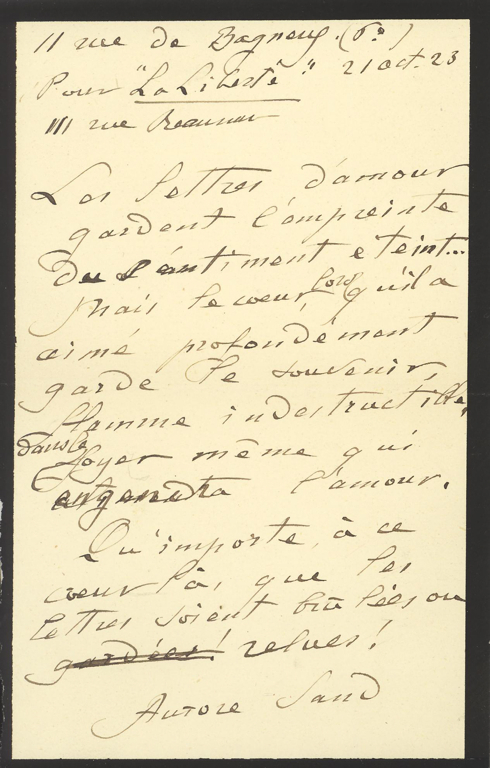 11 rue de Bagneux. (6e)
Pour "La Liberté" 21 oct. 23
111 rue Réaumur
Les lettres d'amour
gardent l'empreinte
du sentiment éteint...
Mais le cœur, lorsqu'il a
aimé profondément
garde le souvenir,
flamme indestructible,
dans le
foyer même qui
engendra l'amour.
Qu'importe, à ce
cœur là, que les
lettres soient brûlées ou
gardées! relues!
Aurore Sand